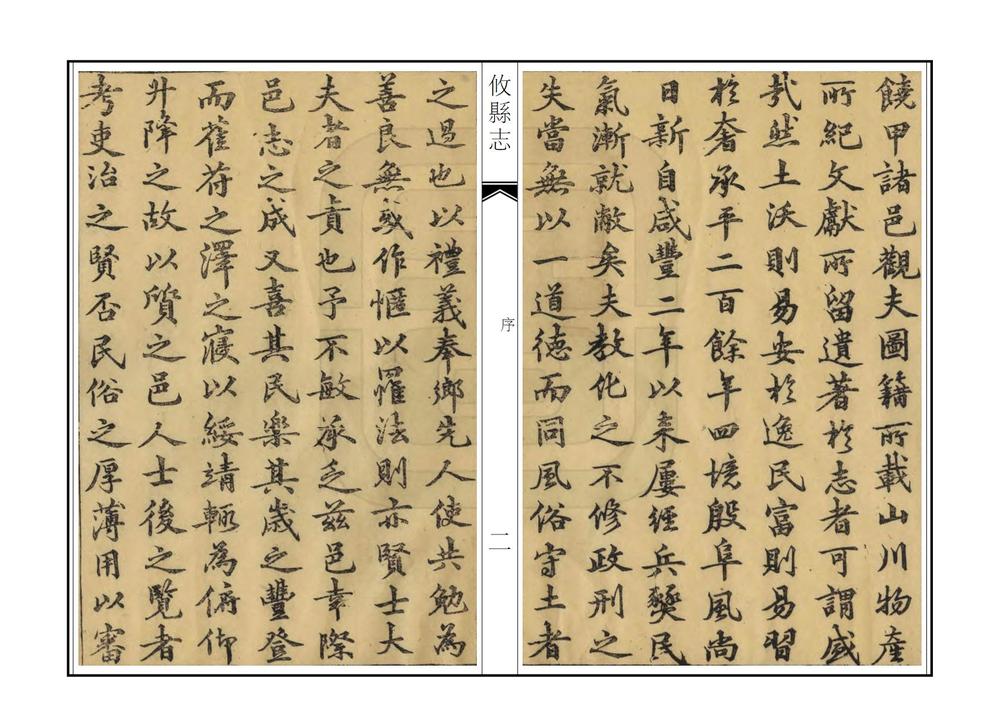 饒甲諸邑觀夫圖籍所載山川物產
所紀文獻所留遺著於志者可謂盛
哉然土沃則易安於逸民富則易習
於奢承平二百餘年四境殷阜風尚
日新自咸豐二年以來屢經兵燹民
氣漸就敝矣夫教化之不修政刑之
失當無以一道德而同風俗守土者
攸縣志
序
二
之過也以禮義奉鄉先人使共勉為
善良無或作慝以罹法則亦賢士大
夫者之責也予不敏承乏茲邑幸際
邑志之成又喜其民樂其歲之豐登
而萑苻之澤之寢以綏靖輒為俯仰
升降之故以質之邑人士後之覽者
考吏治之賢否民俗之厚薄用以審